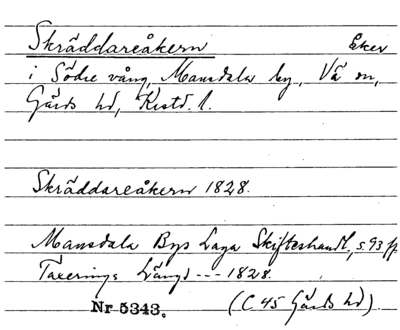 Skräddareåkern Åker
i Södre vång, Mansdala by, Vä sn,
Gärds hd, Krstd. l.
Skräddareåkern 1828.
Mansdala Bys Laga Skifteshandl., s. 93 ff.
Taxerings Längd --- 1828.
Nr 5343. (C 45 Gärds hd).